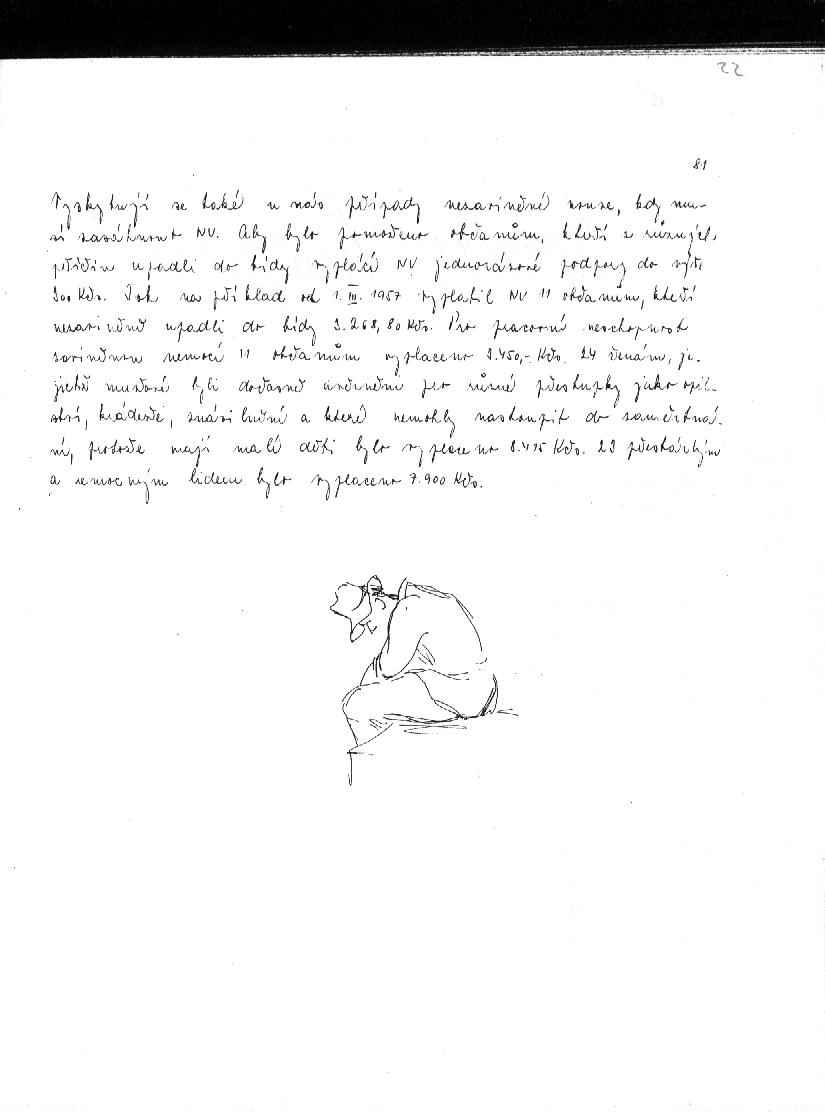 22
81
Vyskytují se také u nás případy nezaviněné nouze, kdy mu-
sí zasáhnout NV. Aby bylo pomoženo občanům, kteří z různých
příčin upadli do bídy vyplácí NV jednorázové podpory do výše
300 Kčs. Tak na příklad od 1. III. 1957 vyplatil NV 11 občanům, kteří
nezaviněně upadli do bídy 3.268,80 Kčs. Pro pracovní neschopnost
zaviněnou nemocí 11 občanům vyplaceno 3.450,- Kčs. 24 ženám, je-
jichž mužové byli dočasně uvězněni pro různé přestupky jako opil-
ství, krádeže, znásilnění a které nemohly nastoupit do zaměstná-
ní, protože mají malé děti bylo vyplaceno 8.415 Kčs. 23 přestárlým
a nemocným lidem bylo vyplaceno 7.900 Kčs.